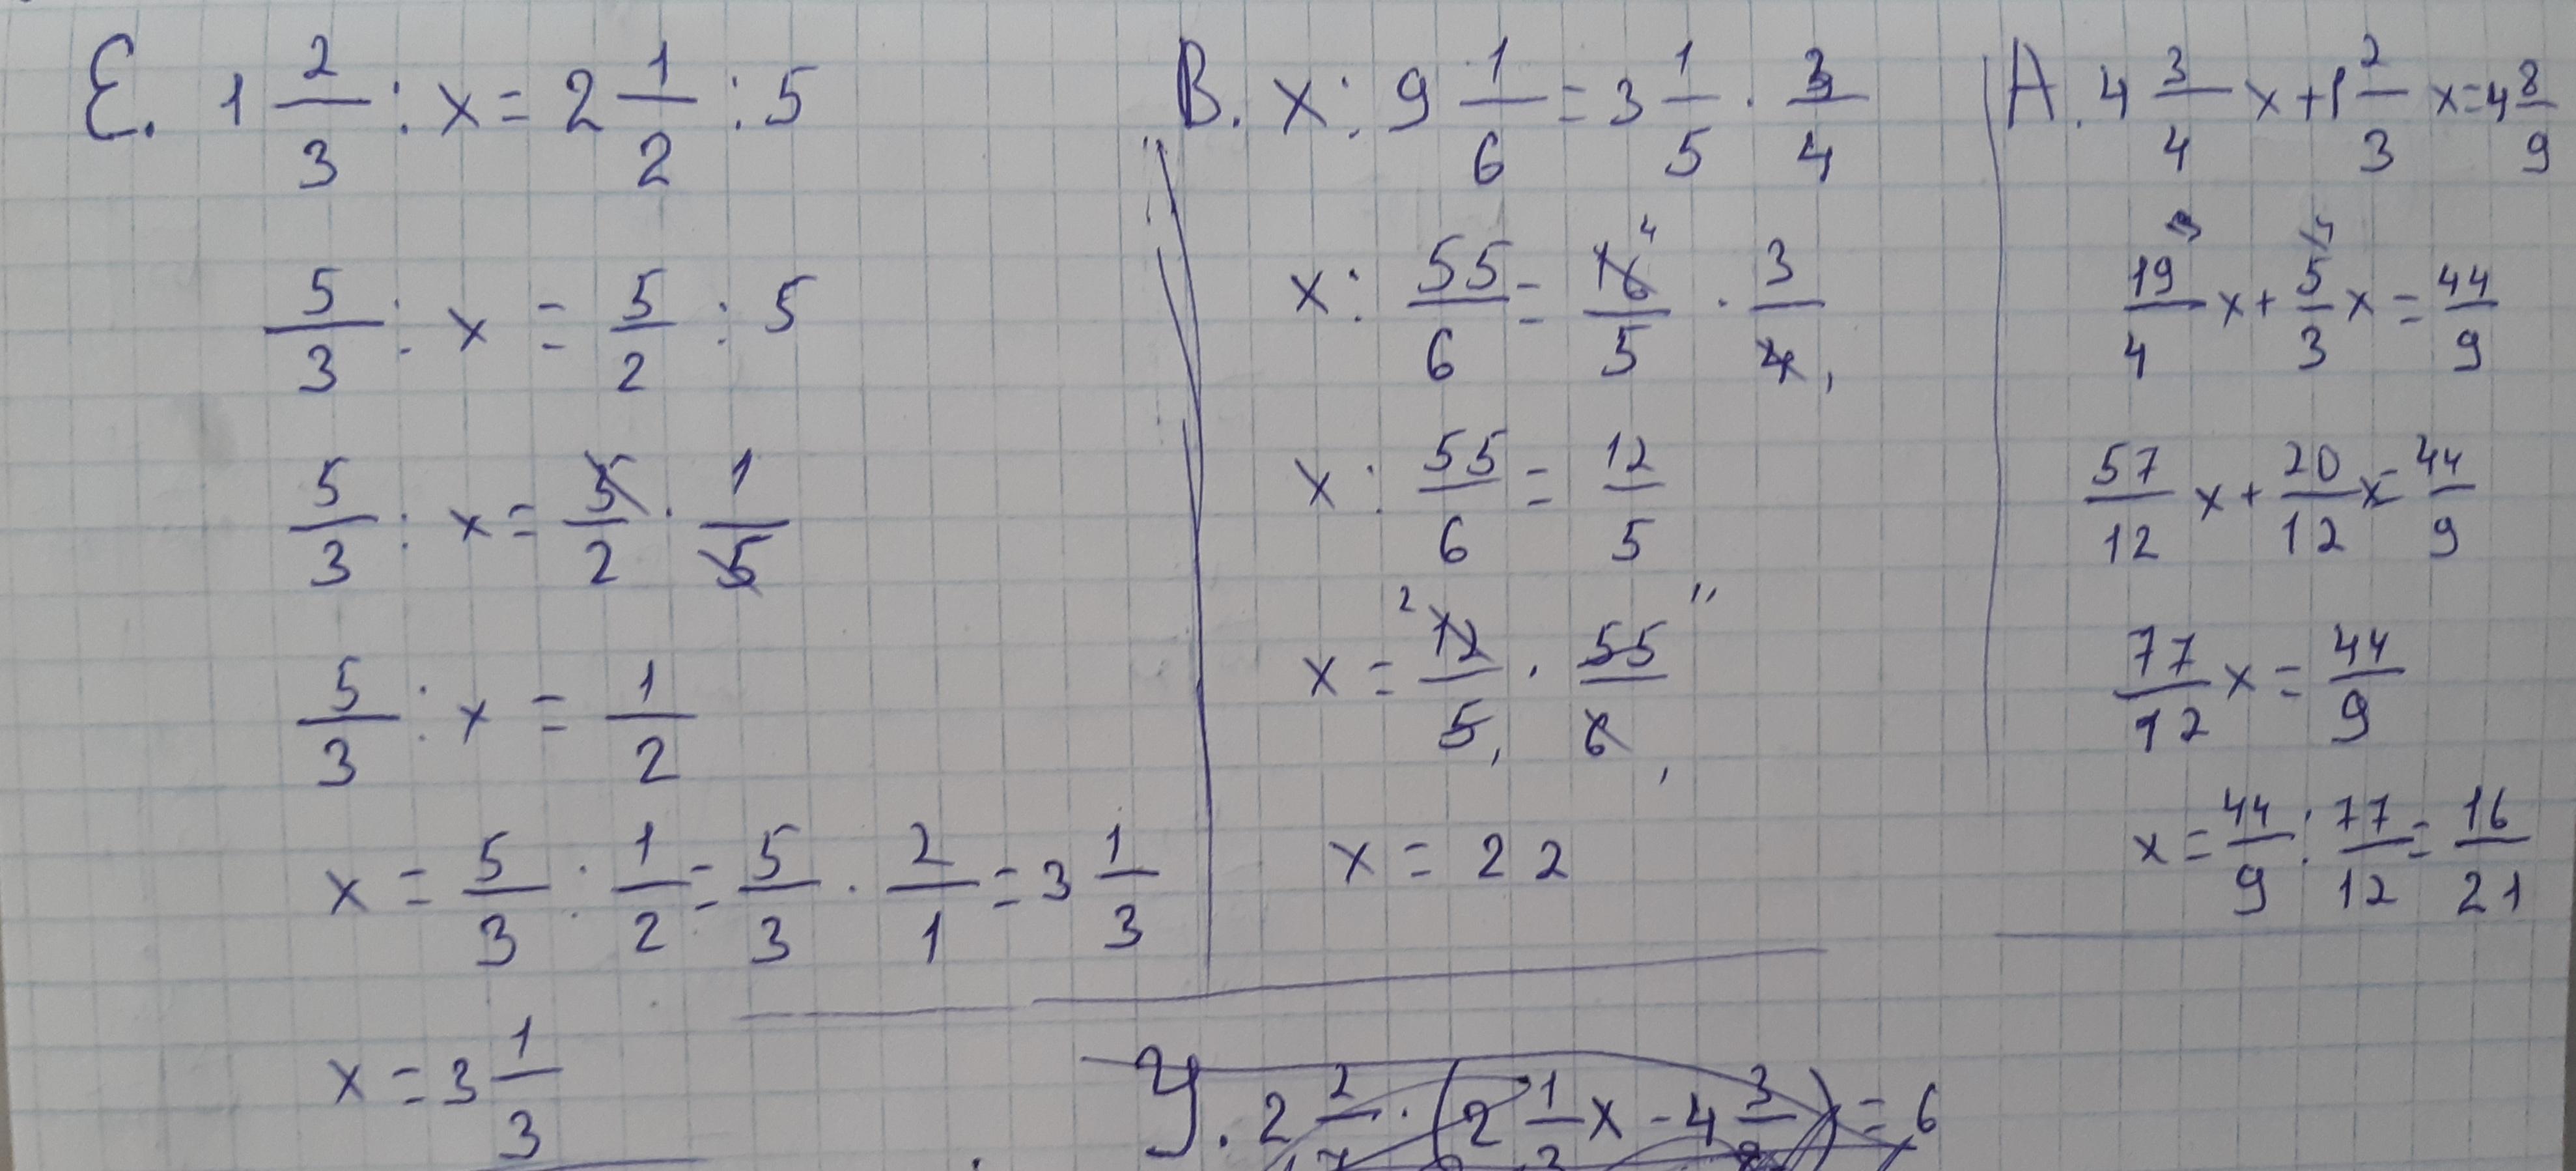 Е. 1 2/3 : x = 2 1/2 : 5
5/3 : x = 5/2 : 5
5/3 : x = 5/2 · 1/5
5/3 : x = 1/2
x = 5/3 : 1/2 = 5/3 · 2/1 = 3 1/3
x = 3 1/3
В. x : 9 1/6 = 3 1/5 · 3/4
x : 55/6 = 16/5 · 3/4
x : 55/6 = 12/5
x = 12/5 · 55/6
x = 22
А. 4 3/4 x + 1 2/3 x = 4 8/9
19/4 x + 5/3 x = 44/9
57/12 x + 20/12 x = 44/9
77/12 x = 44/9
x = 44/9 : 77/12 = 16/21
У. 2 2/ · (2 1/ x - 4 3/ ) = 6